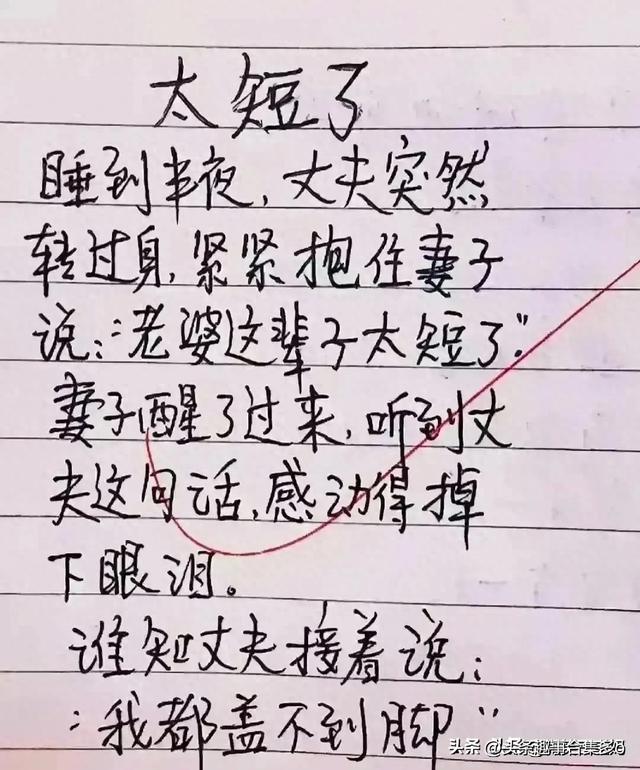 太短了
睡到半夜，丈夫突然
转过身，紧紧抱住妻子
说：“老婆这辈子太短了”
妻子醒了过来，听到丈
夫这句话，感动得掉
下眼泪。
谁知丈夫接着说：
“我都盖不到脚”